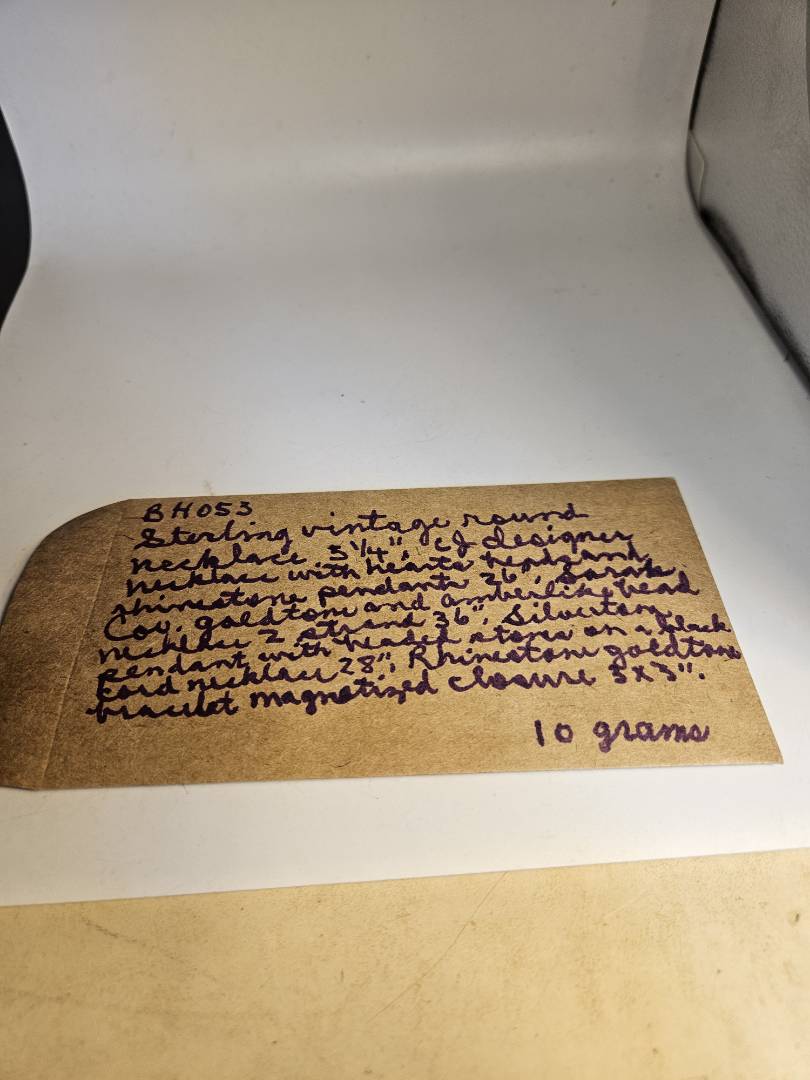 BH053
Sterling vintage round
necklace 5 1/4", CJ designer
necklace with hearts heads and
rhinestone pendants 26", Sarah
Cov. goldtone and amberlike bead
necklace 2 strand 36", Silvertone
pendant with beaded stones on a black
cord necklace 28", Rhinestone goldtone
bracelet magnetized closure 3x3".
10 grams